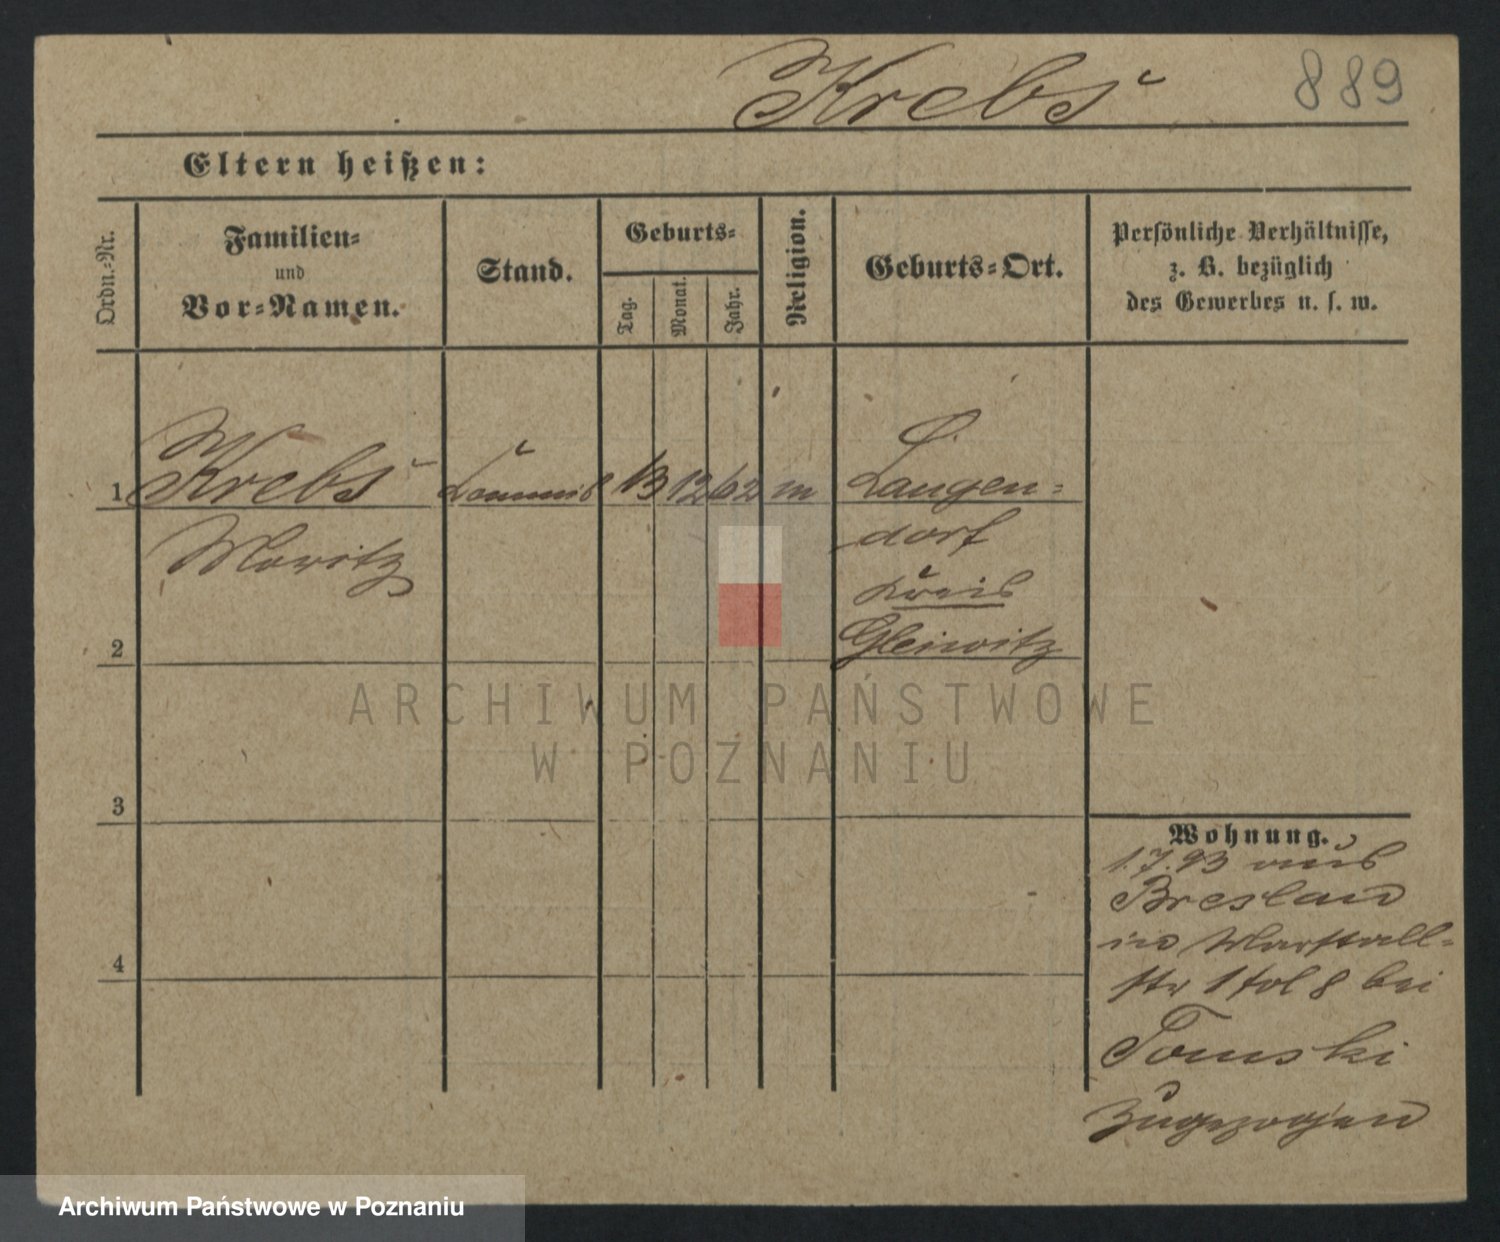 Krebs
889
Eltern heißen:
Ordn.-Nr.
Familien-
und
Vor-Namen.
Stand.
Geburts-
Tag.
Monat.
Jahr.
Religion.
Geburts-Ort.
Persönliche Verhältnisse,
z. B. bezüglich
des Gewerbes u. s. w.
1 Krebs Commis 13 12 62 m Langen-
Moritz dorf
Kreis
2 Gleiwitz
ARCHIWUM PAŃSTWOWE
W POZNANIU
3
Wohnung.
1.7.93 aus
Breslau
in Marstall-
str 1 bei
4
Tomski
zugezogen
Archiwum Państwowe w Poznaniu